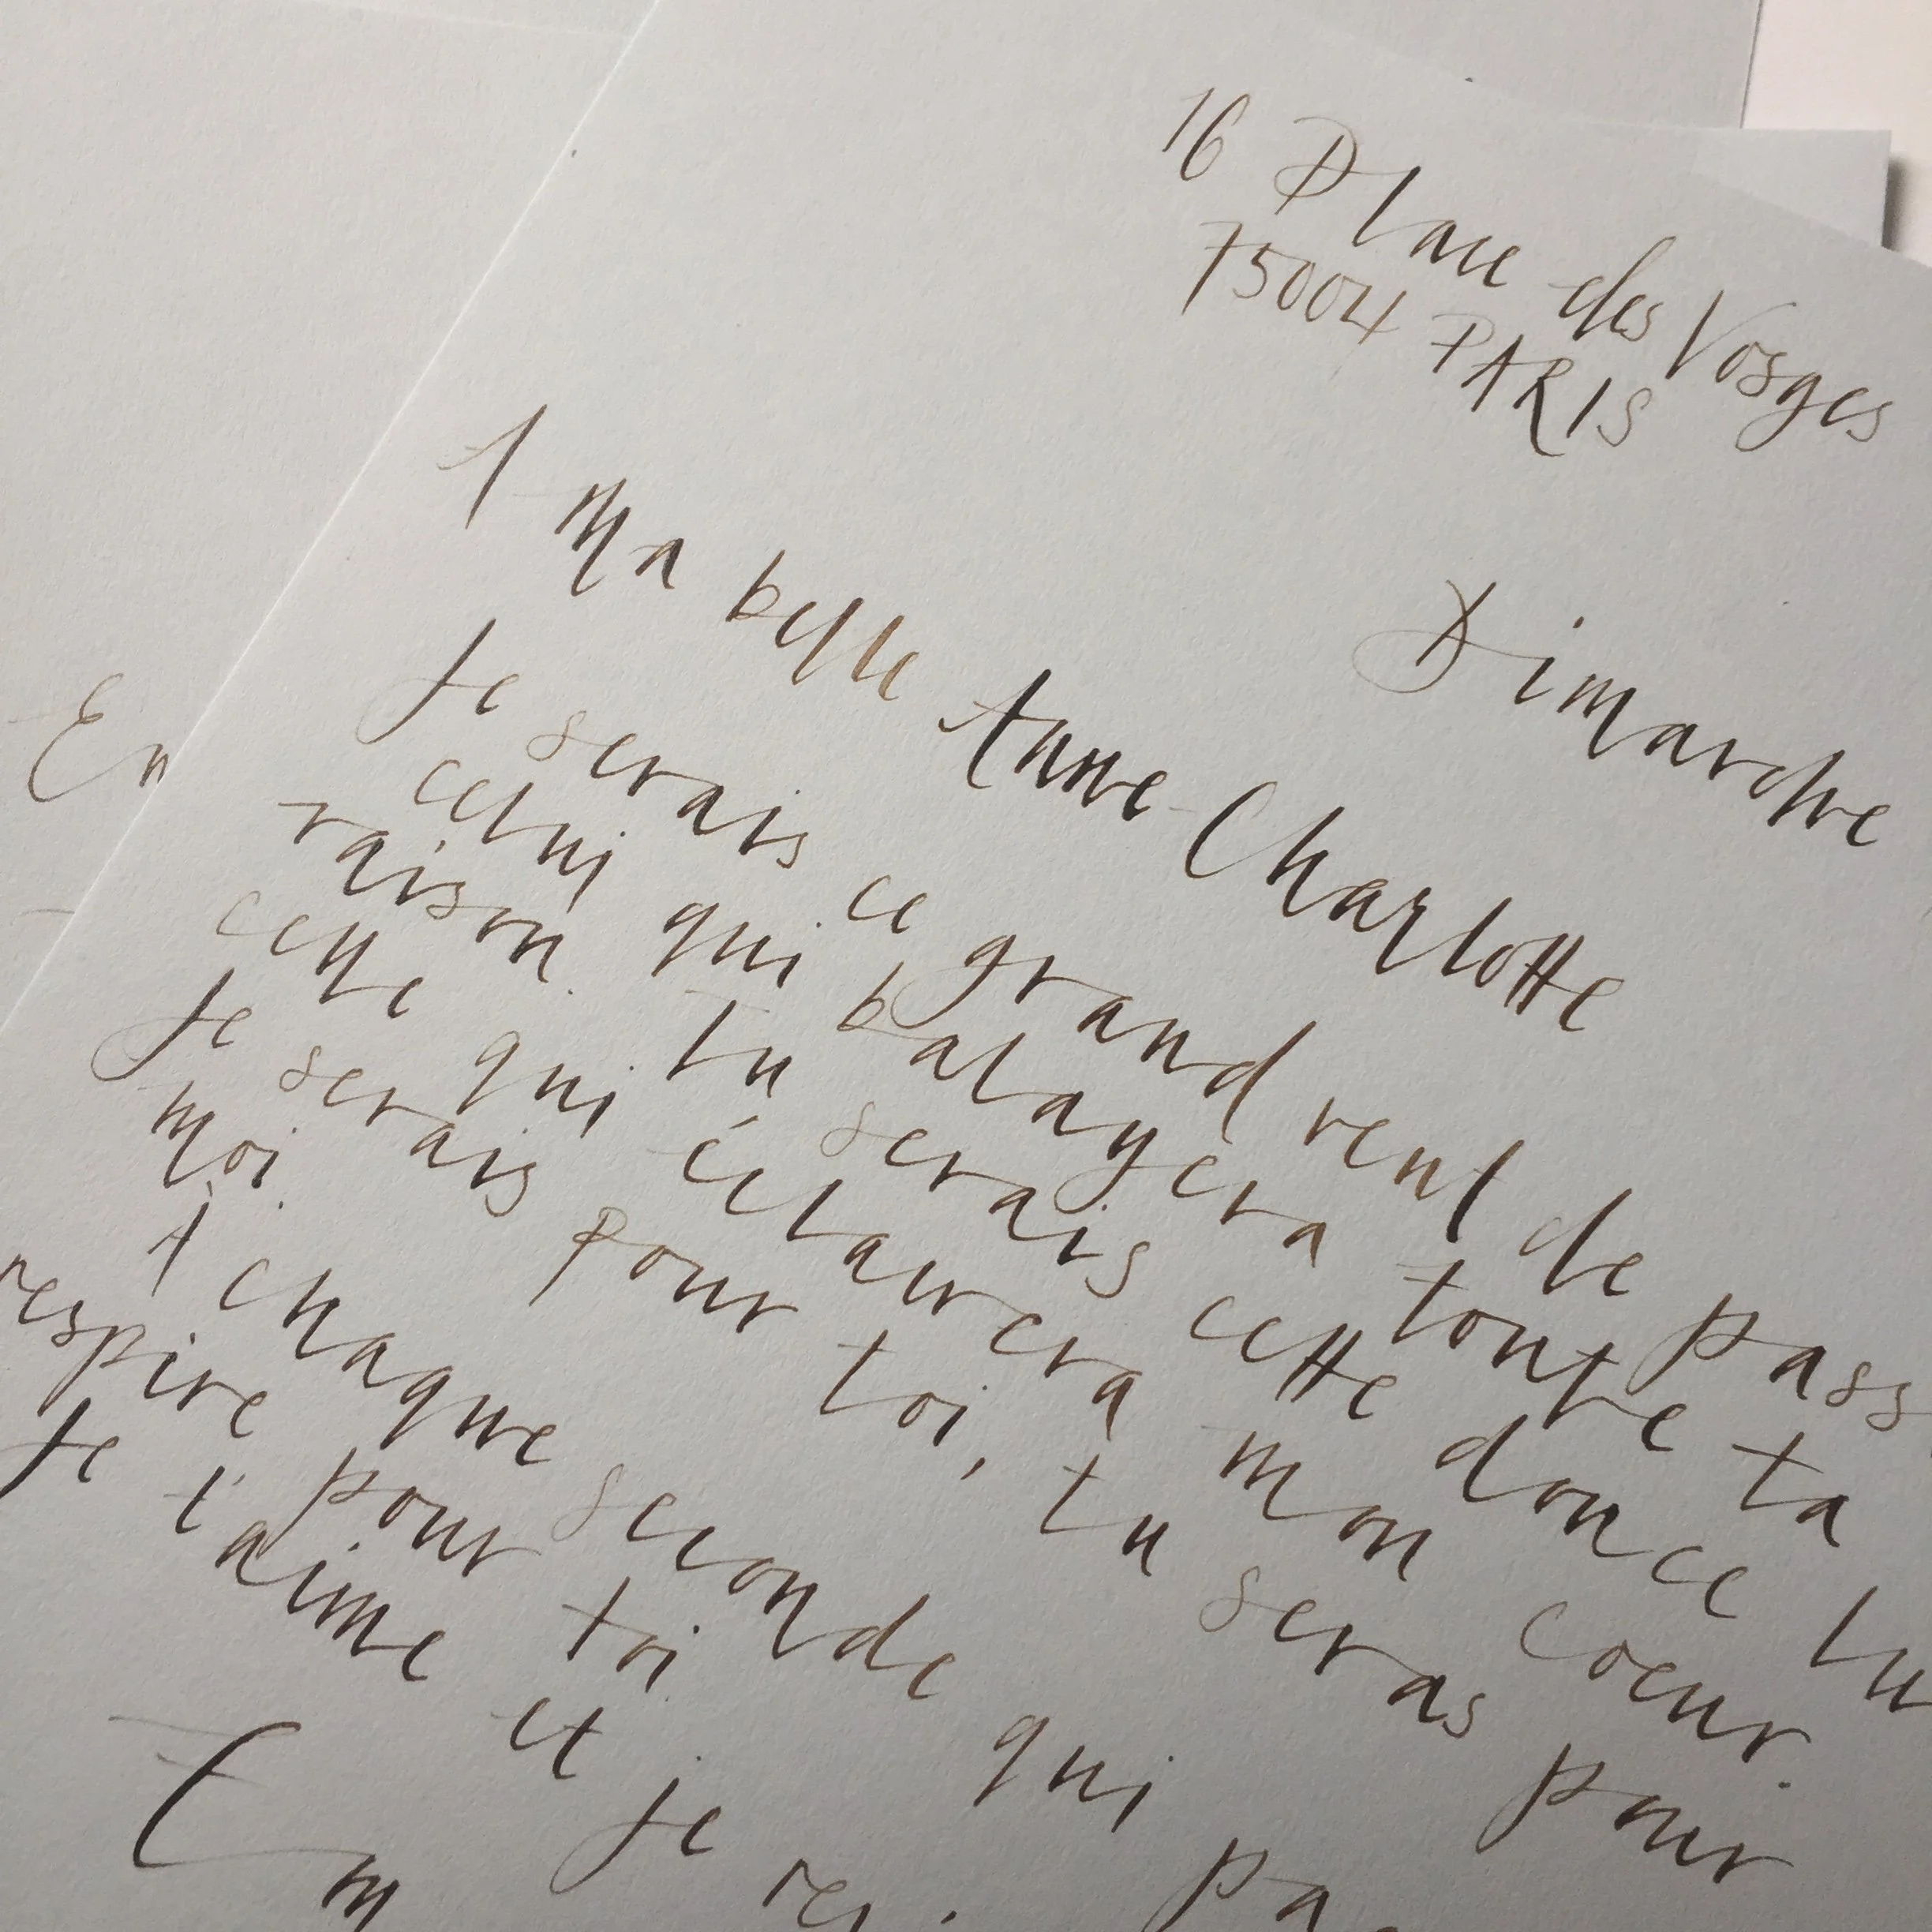 16 Place des Vosges
75004 PARIS
Dimanche
A ma belle Anne-Charlotte
Je serais ce grand vent de pass
celui qui balayera toute ta
raison. tu serais cette douce lu
celle qui éclairera mon coeur.
Je serais pour toi, tu seras pour
moi.
A chaque seconde qui pa
respire pour toi
Je t'aime et je
Em
En